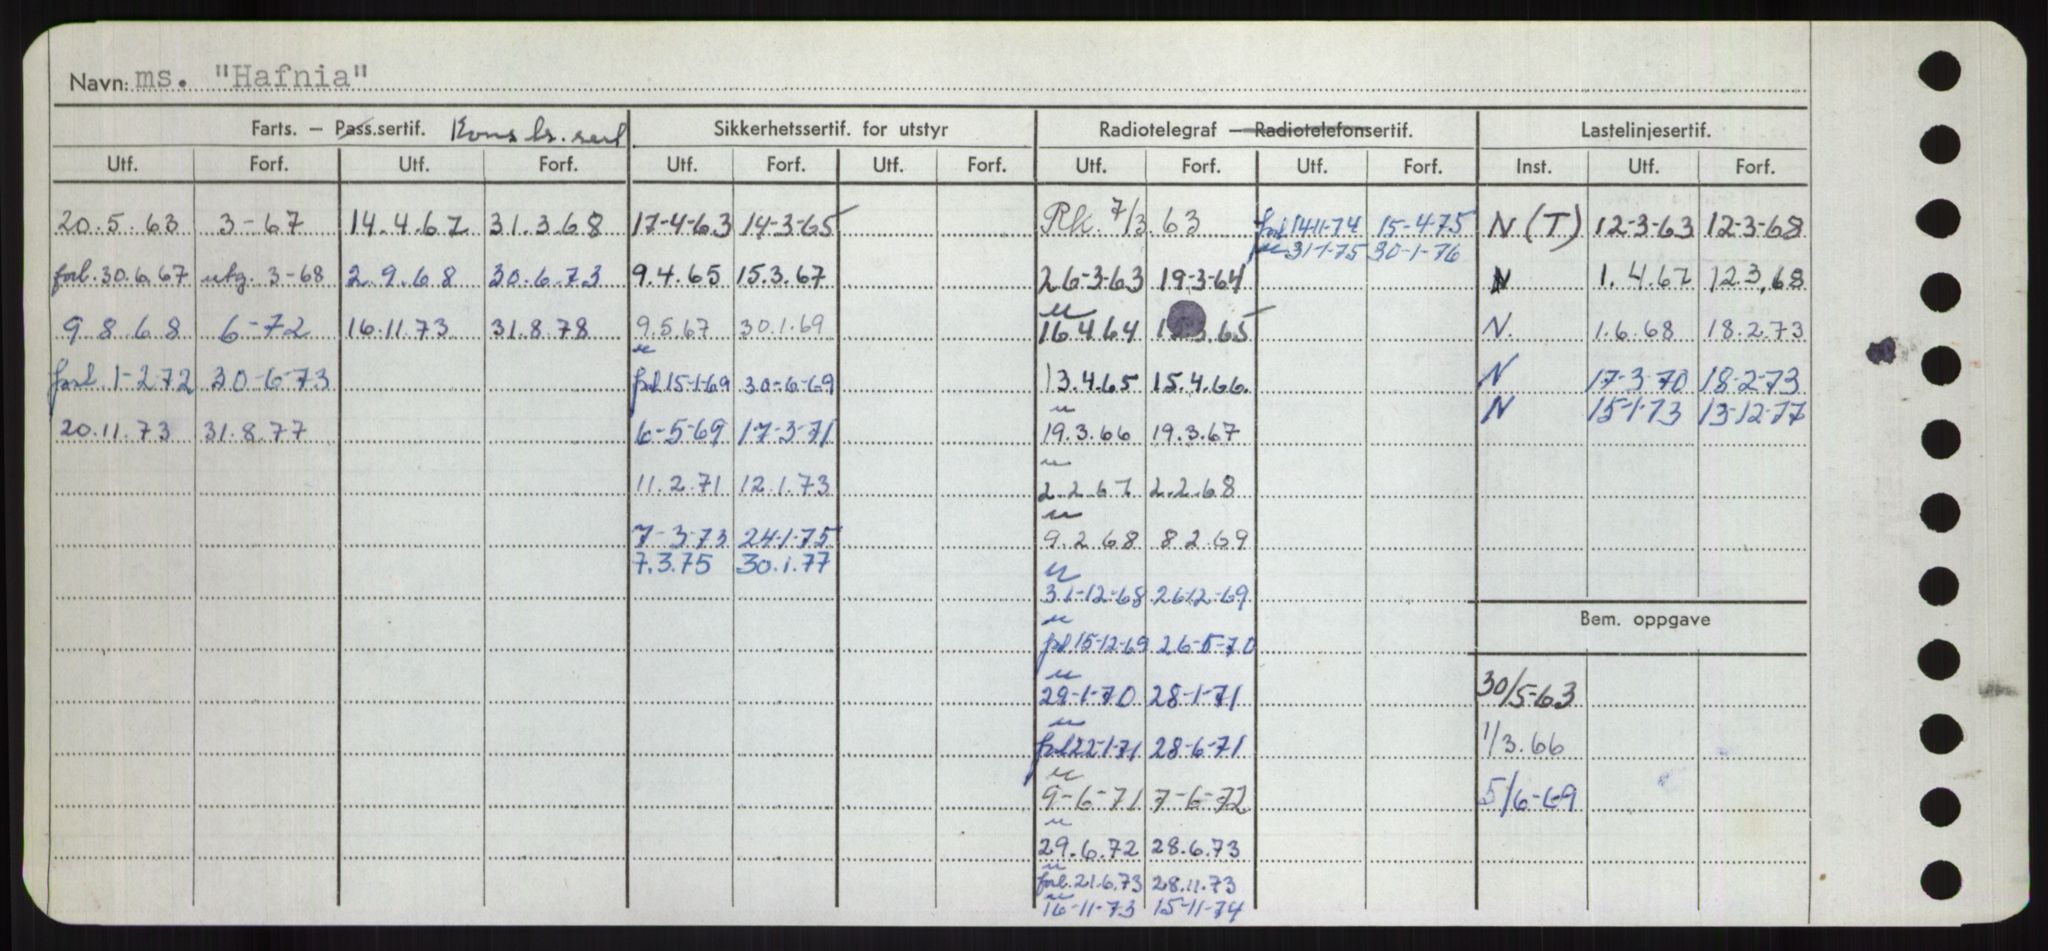 Navn: ms. "Hafnia"
Farts. – Pass.sertif. Kons br. sert Sikkerhetssertif. for utstyr Radiotelegraf – Radiotelefonsertif. Lastelinjesertif.
Utf. Forf. Utf. Forf. Utf. Forf. Utf. Forf. Utf. Forf. Utf. Forf. Inst. Utf. Forf.
20.5.63 3-67 14.4.67 31.3.68 17-4-63 14-3-65 Rk. 7/3.63 forl 14-11-74 15-4-75 N (T) 12-3-63 12-3-68
31-1-75 30-1-76
forl. 30.6.67 utg. 3-68 2.9.68 30.6.73 9.4.65 15.3.67 26-3-63 19-3-64 N 1.4.67 12.3.68
9.8.68 6-72 16.11.73 31.8.78 9.5.67 30.1.69 16.4.64 .65 N. 1.6.68 18.2.73
forl. 1-2-72 30-6-73 forl 15-1-69 30-6-69 13.4.65 15.4.66. N 17-3-70 18-2-73
N 15-1-73 13-12-77
20.11.73 31.8.77 6-5-69 17-3-71 19.3.66 19.3.67
11.2.71 12.1.73 2.2.67 2.2.68
7-3-73 24-1-75 9.2.68 8.2.69
7.3.75 30.1.77
31-12-68 26-12-69
Bem. oppgave
forl. 15-12-69 26-5-70
29-1-70 28-1-71 30/5-63
forl 22-1-71 28-6-71 1/3.66
9-6-71 7-6-72 5/6-69
29.6.72 28.6.73
forl. 21.6.73 28.11.73
16-11-73 15-11-74